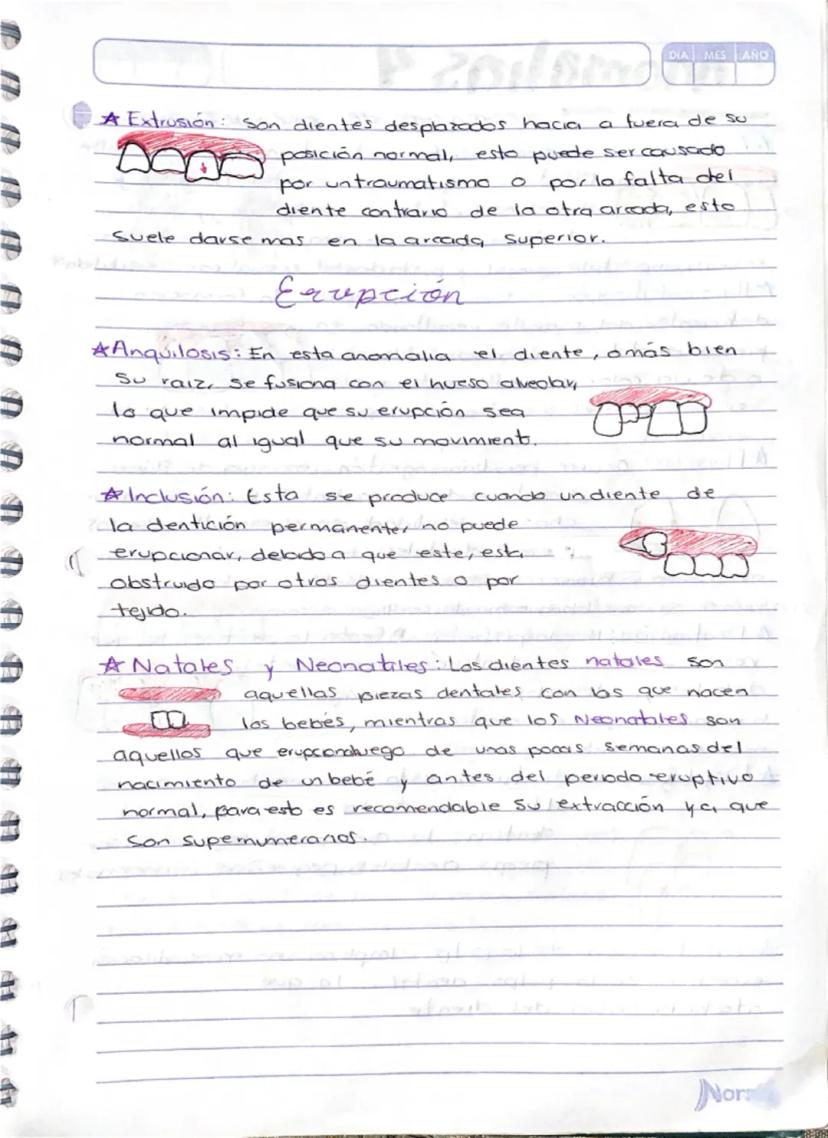 DIA MES AÑO
☆ Extrusión: Son dientes desplazados hacia a fuera de su
posición normal, esto puede ser causado
por un traumatismo o por la falta del
diente contrario de la otra arcada, esto
suele darse mas en la arcada superior.
Erupción
☆ Anquilosis: En esta anomalia el diente, o más bien
su raíz, se fusiona con el hueso alveolar,
lo que impide que su erupción sea
normal al igual que su movimient.
☆ Inclusión: Esta se produce cuando un diente de
la dentición permanente, no puede
erupcionar, debido a que este, esta
obstruido por otros dientes o por
tejido.
☆ Natales y Neonatales: Los dientes natales son
aquellas piezas dentales con los que nacen
los bebés, mientras que los Neonatales son
aquellos que erupcionan luego de unas pocas semanas del
nacimiento de un bebé y antes del periodo eruptivo
normal, para esto es recomendable su extracción ya que
son supernumerarios.
Nor